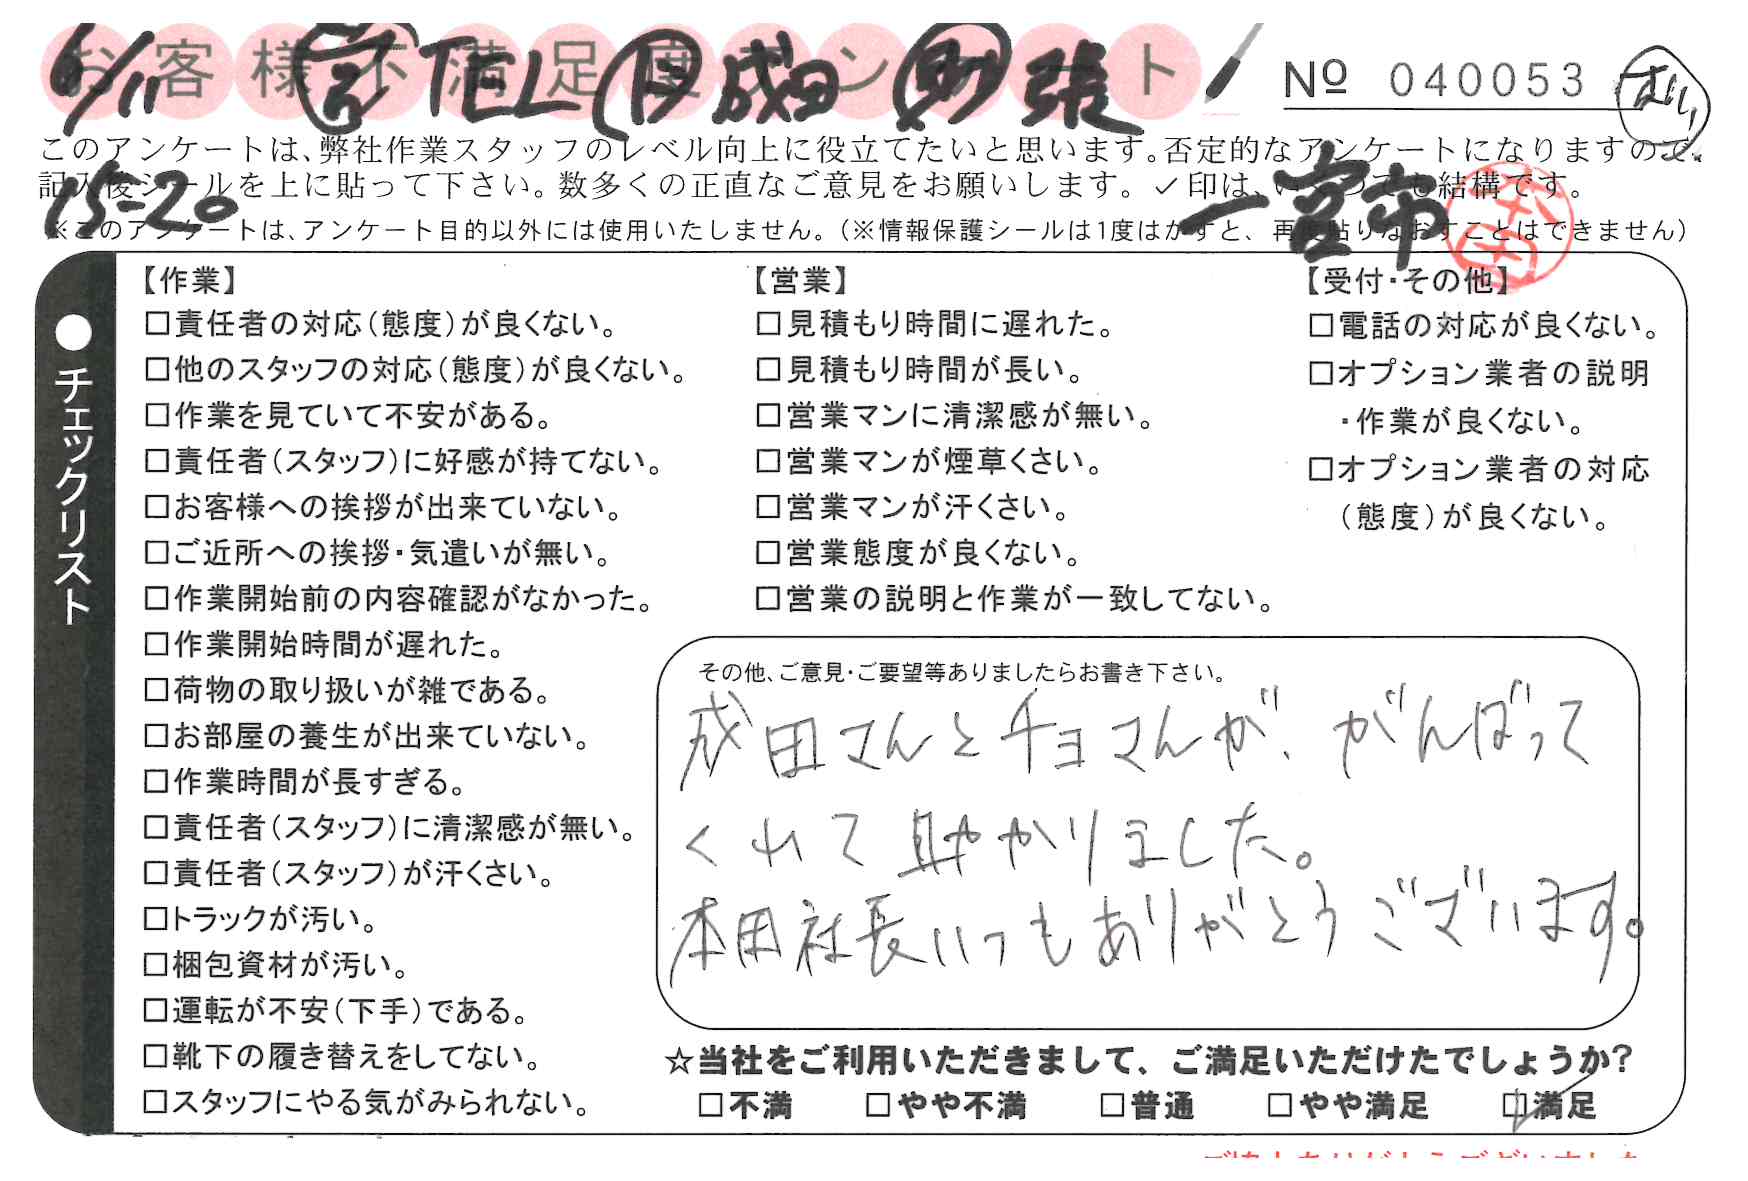 お客様不満足度アンケート
6/11 営 TEL 日 成田 助 張
№ 040053 はい
このアンケートは、弊社作業スタッフのレベル向上に役立てたいと思います。否定的なアンケートになりますので、
記入後シールを上に貼って下さい。数多くの正直なご意見をお願いします。✓印は、いくつでも結構です。
15-20 一宮市 本田
※このアンケートは、アンケート目的以外には使用いたしません。（※情報保護シールは1度はがすと、再度貼りなおすことはできません）
●チェックリスト
【作業】
□責任者の対応（態度）が良くない。
□他のスタッフの対応（態度）が良くない。
□作業を見ていて不安がある。
□責任者（スタッフ）に好感が持てない。
□お客様への挨拶が出来ていない。
□ご近所への挨拶・気遣いが無い。
□作業開始前の内容確認がなかった。
□作業開始時間が遅れた。
□荷物の取り扱いが雑である。
□お部屋の養生が出来ていない。
□作業時間が長すぎる。
□責任者（スタッフ）に清潔感が無い。
□責任者（スタッフ）が汗くさい。
□トラックが汚い。
□梱包資材が汚い。
□運転が不安（下手）である。
□靴下の履き替えをしてない。
□スタッフにやる気がみられない。
【営業】
□見積もり時間に遅れた。
□見積もり時間が長い。
□営業マンに清潔感が無い。
□営業マンが煙草くさい。
□営業マンが汗くさい。
□営業態度が良くない。
□営業の説明と作業が一致してない。
【受付・その他】
□電話の対応が良くない。
□オプション業者の説明
・作業が良くない。
□オプション業者の対応
（態度）が良くない。
その他、ご意見・ご要望等ありましたらお書き下さい。
成田さんとチョさんが、がんばって
くれて助かりました。
本田社長いつもありがとうございます。
☆当社をご利用いただきまして、ご満足いただけたでしょうか？
□不満 □やや不満 □普通 □やや満足 ☑満足